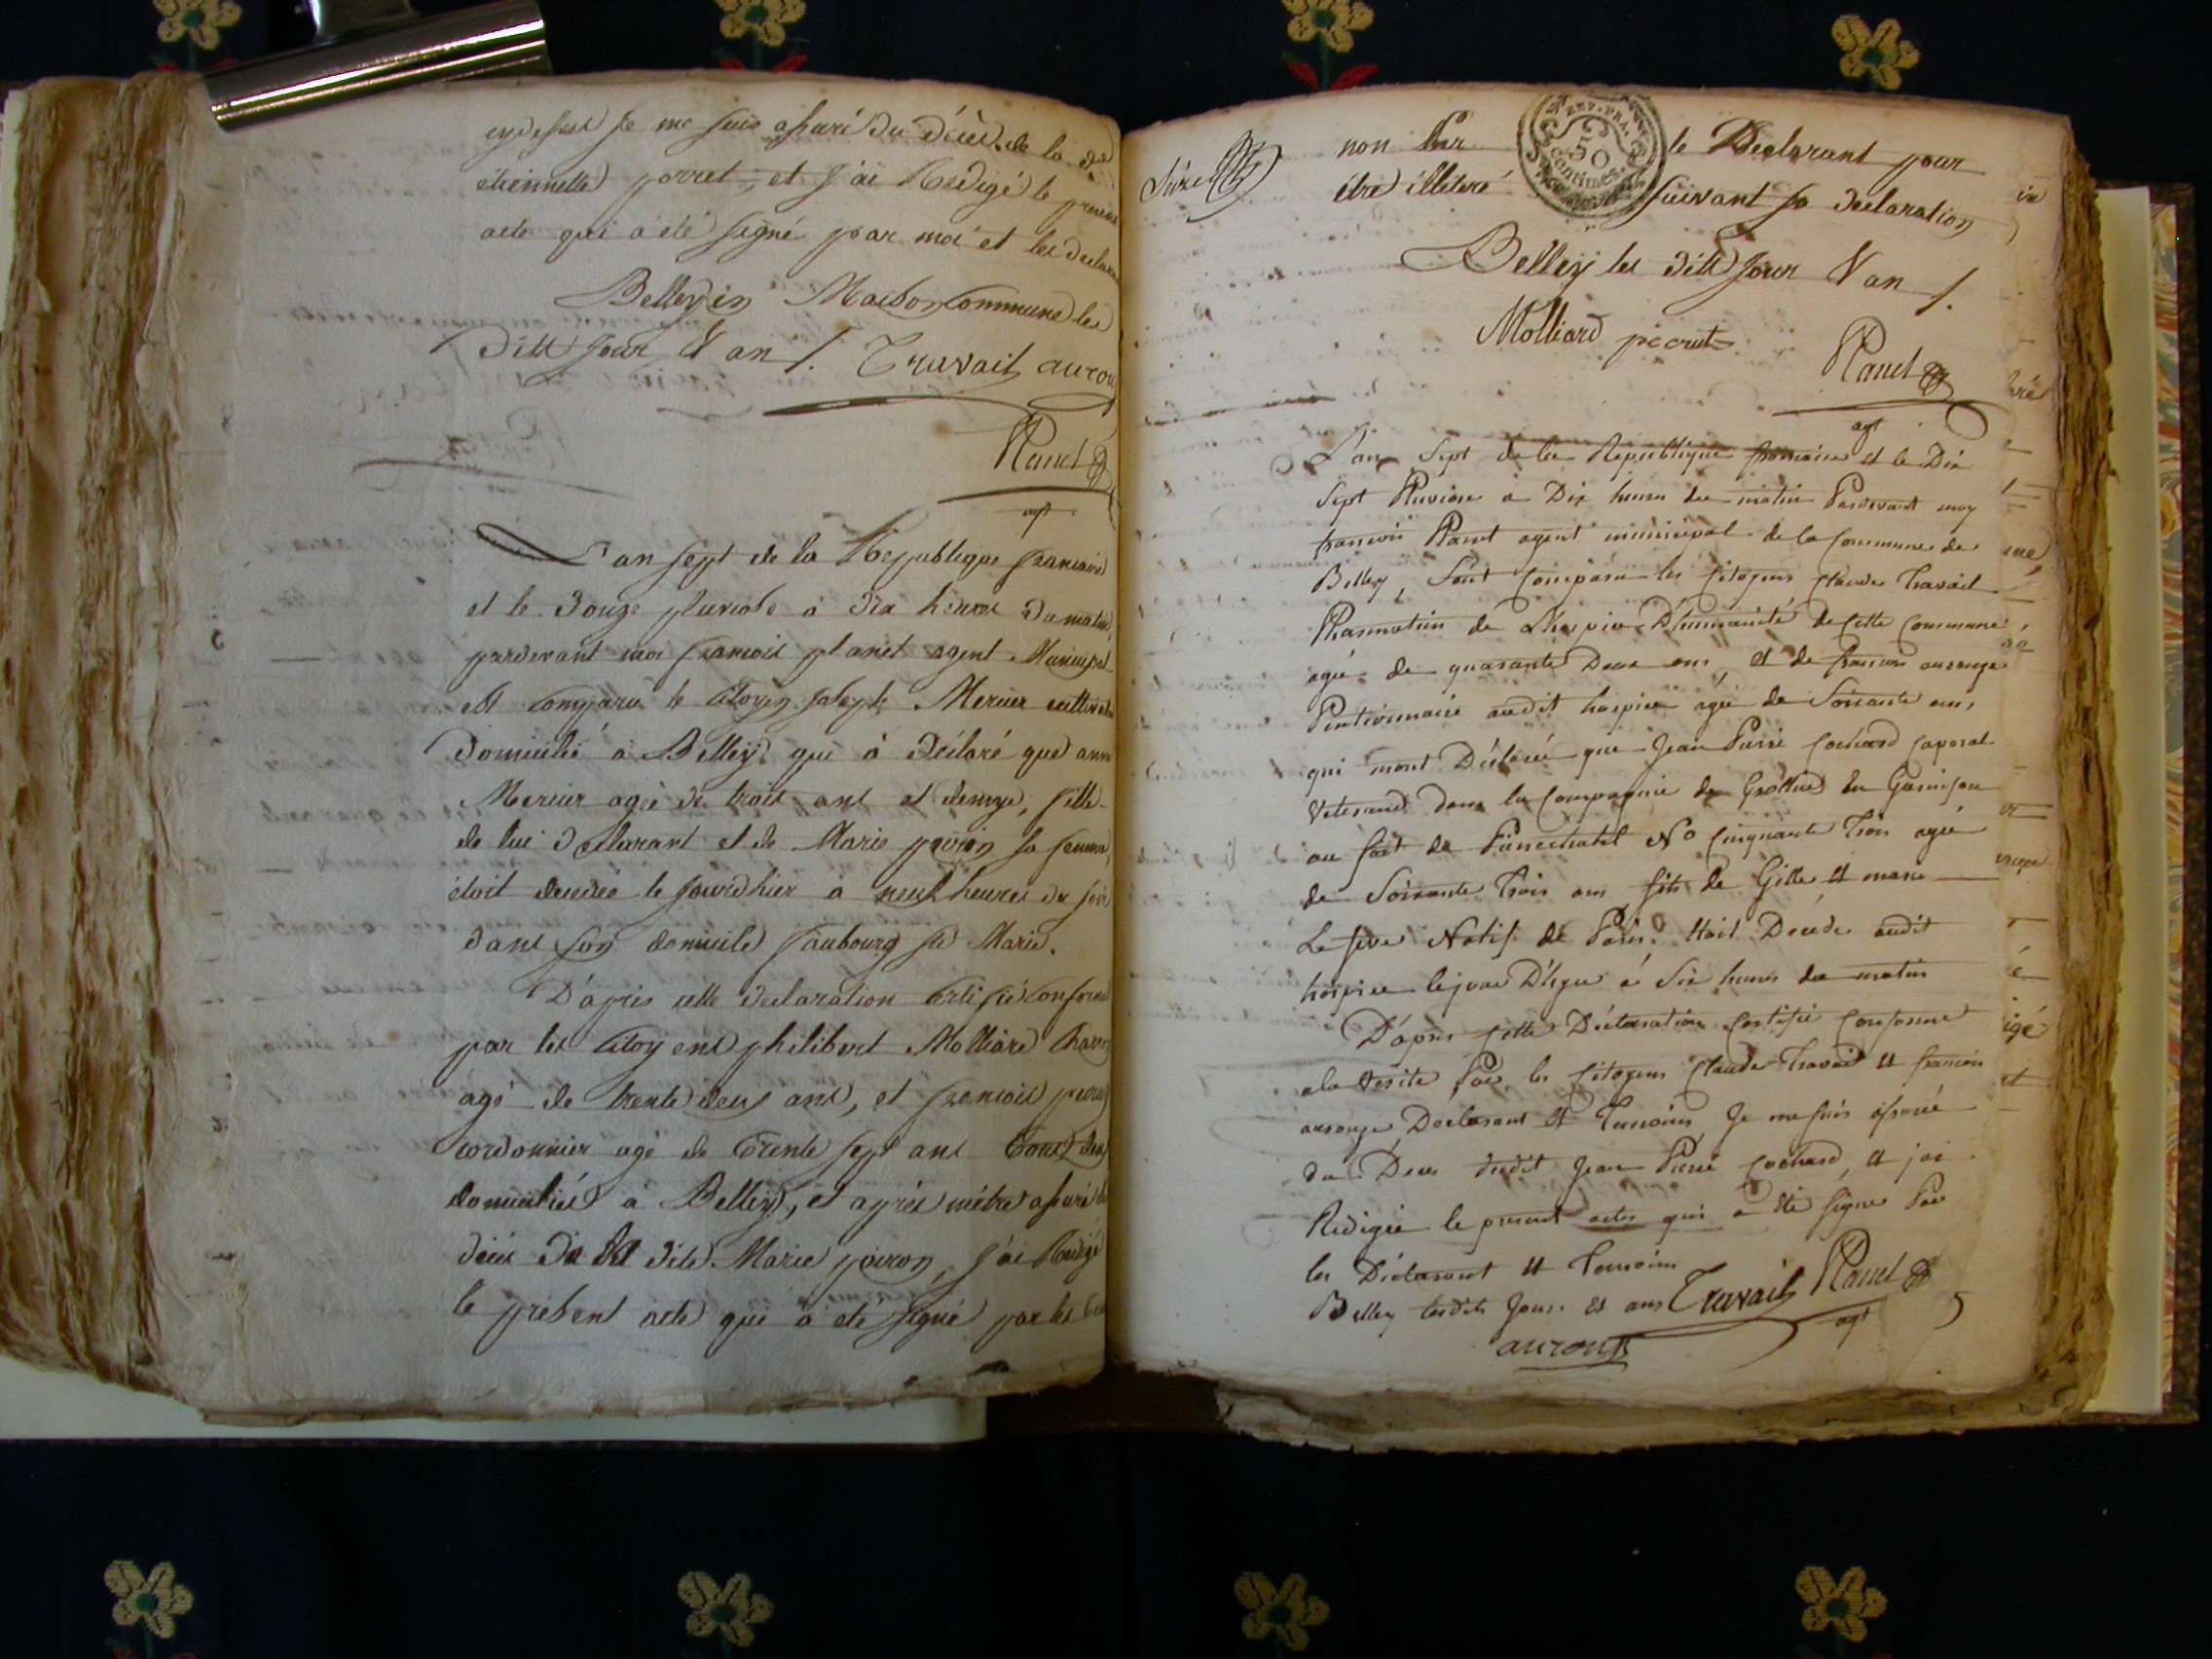 cydessus je me suis assuré du décès de la d.te
étiennette porret, et j'ai Redigé le present
acte qui a été signé par moi et les declara
Belley en Maison Commune les
dits jour & an /. Travail auzou
Planet
agt
L'an sept de la Republique francaise
et le douze pluviose à dix heures du matin
pardevant moi francois planet agent Municipal
est comparu le citoyen joseph Mercier cultivate
domicilié à Belley, qui à déclaré que anne
Mercier agée de trois ans et demye, fille
de lui declarant et de Marie poiron sa femme,
étoit decedée le jourdhier à neuf heures du soir
dans son domicile faubourg ste Marie.
D'après cette declaration certifié conforme
par les citoyens philibert Molliard
agé de trente deux ans, et francois perrut
cordonnier agé de trente sept ans tous deux
domiciliés à Belley, et après mêtre assuré du
décès de la dite Marie poiron, j'ai Redigé
le présent acte qui à été signé par les
non par le Declarant pour
être illiteré suivant sa declaration
REP. FRA.
50
Centimes
Belley les dits jour & an /.
Molliard perrut
Planet
agt
L'an Sept de la Republique francaise et le Dix
Sept Pluviose a Dix heures du matin Pardevant moy
francois Planet agent municipal de la Commune de
Belley, Sont Comparu les Citoyens Claude Travail
Pharmatien de L'hospice D'humanité de Cette Commune,
agée de quarante Deux ans, et de francois auzouge
Pentionnaire audit hospice agée de Soixante ans,
qui mont Déclaré que Jean Pierre Cochard Caporal
Veterand dans la Compagnie de en Garnison
au fort de Pierrechatel No Cinquante Trois agée
de Soixante Trois ans fils de Gille et marie
Le feve Natif de Paris. Etait Décédé audit
hospice le jour D'hyer à Six heures du matin
D'après Cette Déclaration Certifié Conforme
a la verité Par les Citoyens Claude Travail et francois
auzouge Declarant et Temoins Je me suis assurée
du Deces dudit Jean Pierre Cochard, et jai
Redigée le present acte qui a été signé Par
les Déclarant et Temoins
Belley lesdits Jour et ans Travail Planet
agt
auzouge